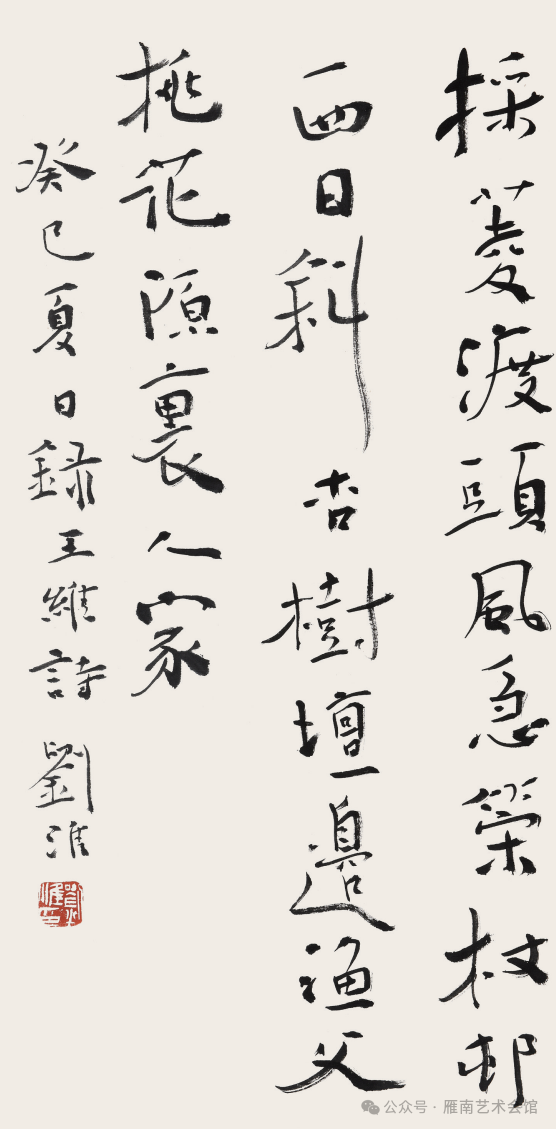 採菱渡頭風急策杖邨
西日斜杏樹壇邊漁父
桃花源裏人家
癸巳夏日録王維詩 劉淮
公众号 · 雁南艺术会馆